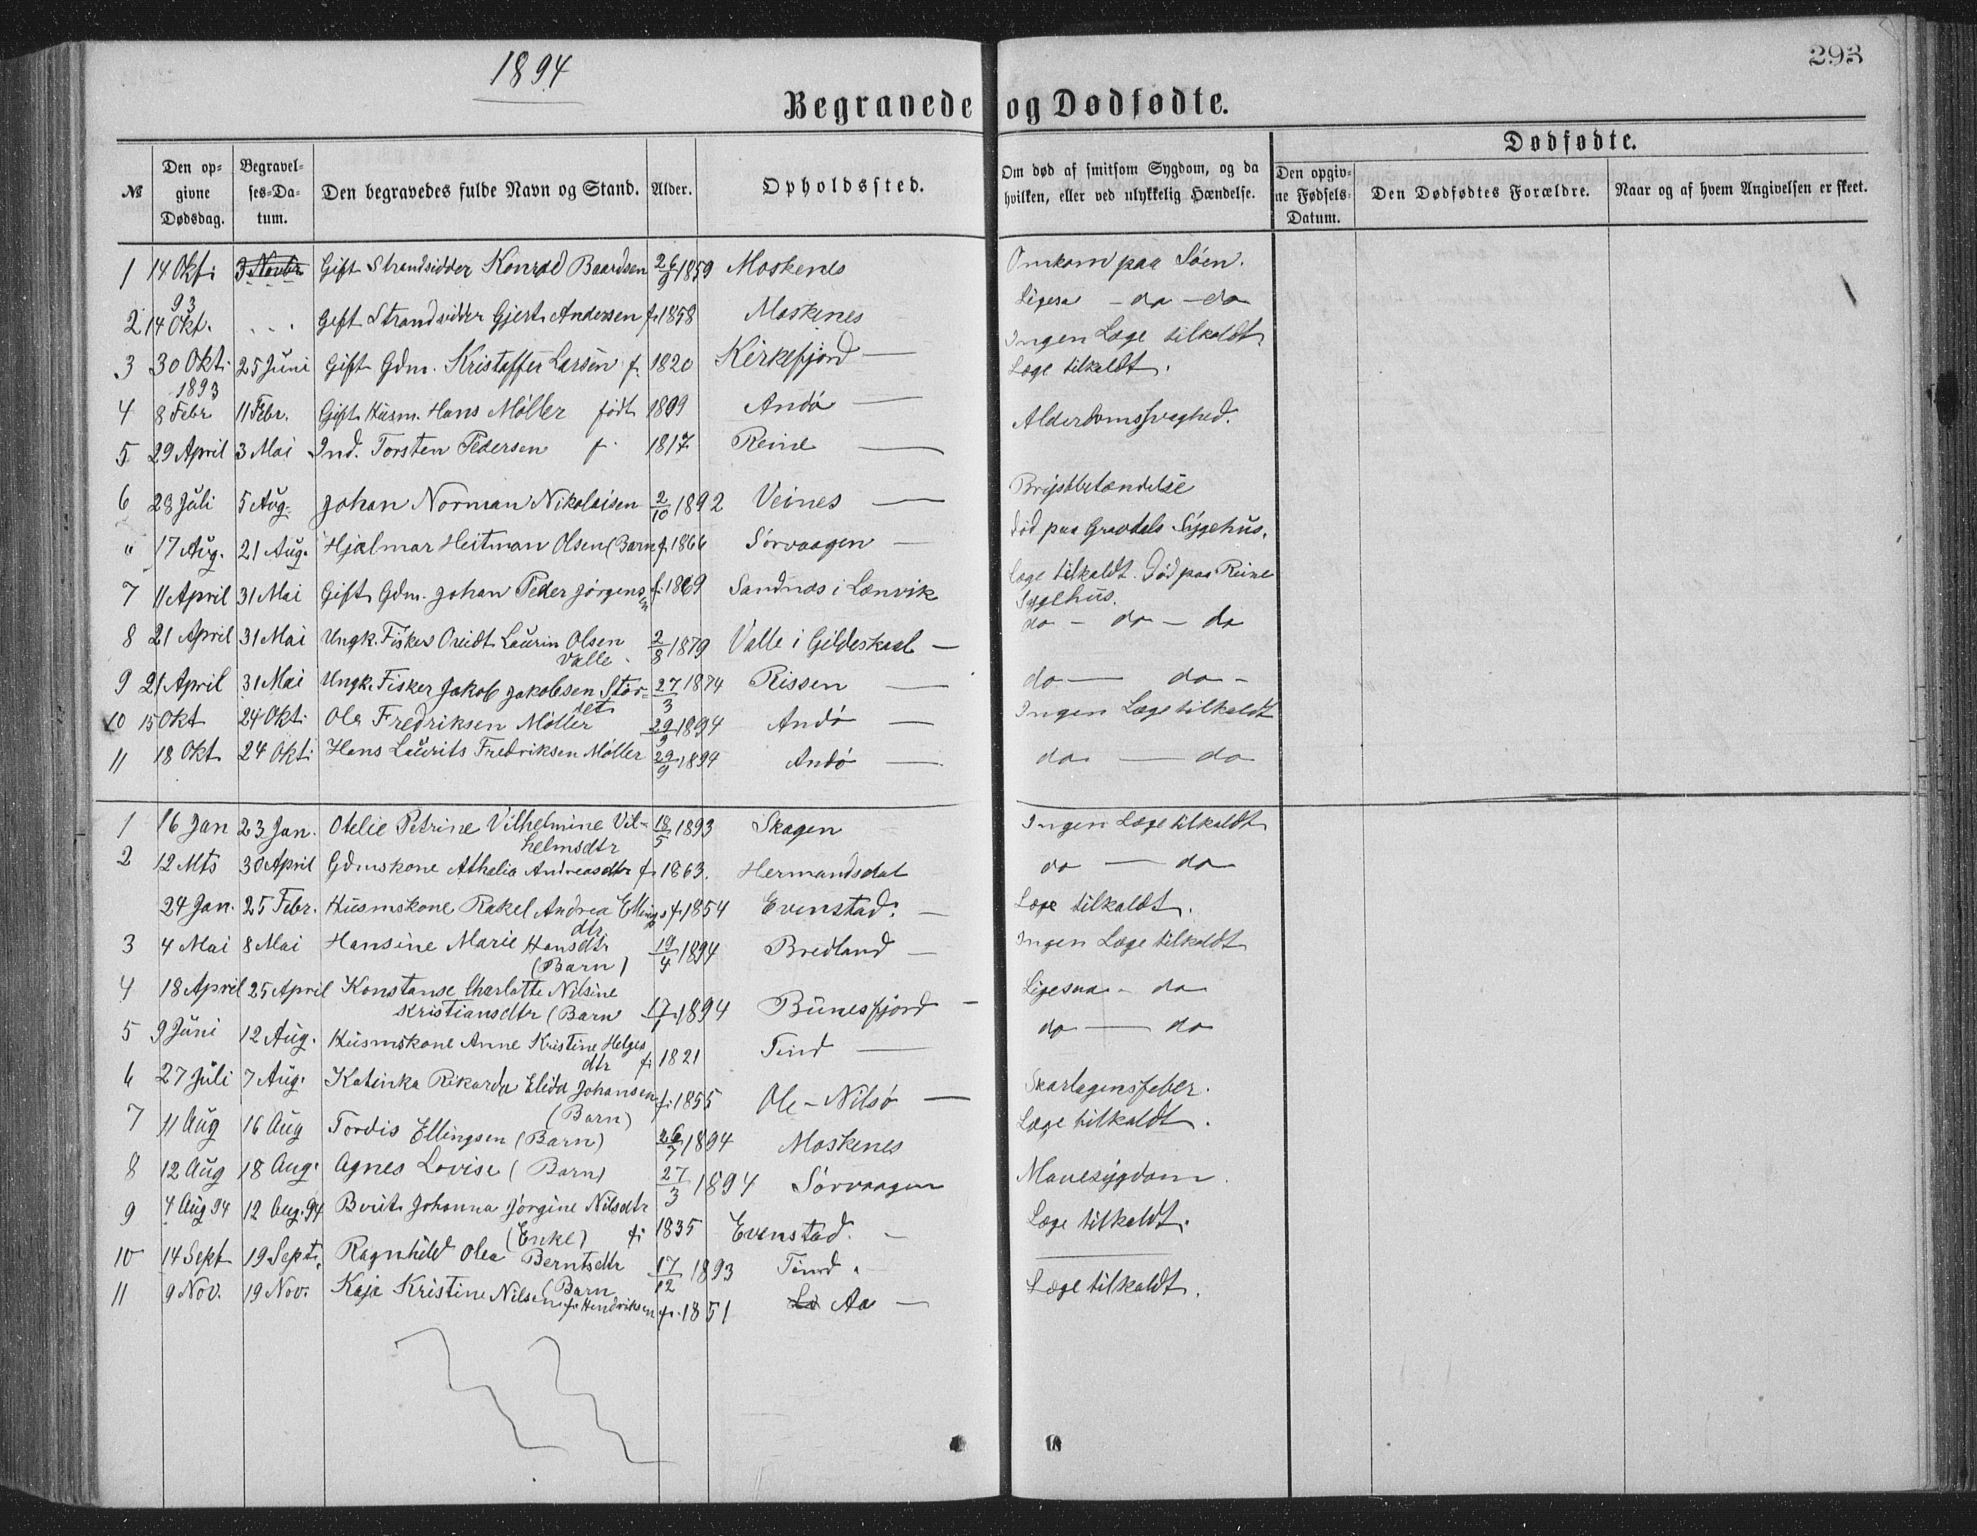 1894
293
Begravede og Dødfødte.
№ Den opgivne Dødsdag. Begravelses-Datum. Den begravedes fulde Navn og Stand. Alder. Opholdssted. Om død af smitsom Sygdom, og da hvilken, eller ved ulykkelig Hændelse. Dødfødte. Den opgivne Fødsels-Datum. Den Dødfødtes Forældre. Naar og af hvem Angivelsen er skeet.
1 14 Okt. 93 3 Novbr Gift Strandsidder Konrad Baardsen 26/9 1859 Moskenes Omkom paa Søen.
2 14 Okt. Gift Strandsidder Gjert Andersen f. 1858 Moskenes Ligesa - do - do
3 30 Okt. 1893 25 Juni Gift Gdm. Kristoffer Larsen f. 1820 Kirkefjord — Ingen Læge tilkaldt
4 8 Febr 11 Febr. Gift Husm. Hans Møller født 1809 Andø — Læge tilkaldt.
5 29 April 3 Mai Ind. Torsten Pedersen f. 1817 Reine — Alderdomssvaghed.
6 28 Juli 5 Aug. Johan Norman Nikolaisen 2/10 1892 Veines — Brystbetændelse
" 17 Aug. 21 Aug. Hjalmar Heitman Olsen (Barn f. 1866 Sørvaagen — Død paa Gravdals Sygehus.
7 11 April 31 Mai Gift Gdm. Johan Peder Jørgensen f. 1869 Sandnæs i Lenvik Læge tilkaldt. Død paa Reine Sygehus.
8 21 April 31 Mai Ungk. Fisker Ovidt Laurin Olsen Valle 2/8 1879 Valle i Gildeskaal — do - do - do
9 21 April 31 Mai Ungk. Fisker Jakob Jakobsen Stordet 27/3 1874 Rissen — do — do -
10 15 Okt 24 Okt. Ole Fredriksen Møller 29/9 1894 Andø — Ingen Læge tilkaldt
11 18 Okt 24 Okt. Hans Laurits Fredriksen Møller 29/9 1894 Andø — do — do
1 16 Jan 23 Jan. Otelie Petrine Vilhelmine Vilhelmsdtr 18/5 1893 Skagen Ingen Læge tilkaldt
2 12 Mts 30 April Gdmskone Athalia Andreasdtr f. 1863. Hermandsdal do — do
24 Jan. 25 Febr. Husmskone Rakel Andrea Ellingsdtr f. 1854 Evenstad. — Læge tilkaldt.
3 4 Mai 8 Mai Hansine Marie Hansdtr (Barn) 19/4 1894 Bredland — Ingen Læge tilkaldt
4 18 April 25 April Konstanse Charlotte Nilsine Kristiansdtr (Barn 17/1 1894 Bunesfjord — Ligesaa - do
5 9 Juni 12 Aug. Husmskone Anne Kristine Helgesdtr f. 1821 Tind — do — do
6 27 Juli 7 Aug. Katinka Rikarda Elida Johansen (Barn) f. 1855 Ole-Nilsø — Skarlagensfeber.
7 11 Aug 16 Aug Tordis Ellingsen (Barn) 26/7 1894 Moskenes Læge tilkaldt.
8 12 Aug 18 Aug. Agnes Lovise (Barn) 27/3 1894 Sørvaagen Mavesygdom.
9 4 Aug 94 12 Aug. 94 Berit Johanna Jørgine Nilsdtr (Enke) f. 1835 Evenstad. — Læge tilkaldt.
10 14 Sept 19 Sept. Ragnhild Olea Berntsdtr (Barn 17/12 1893 Tind.
11 9 Nov. 19 Nov. Kaja Kristine Nilsen f. Hendriksen f. 1851 Aa — Læge tilkaldt.